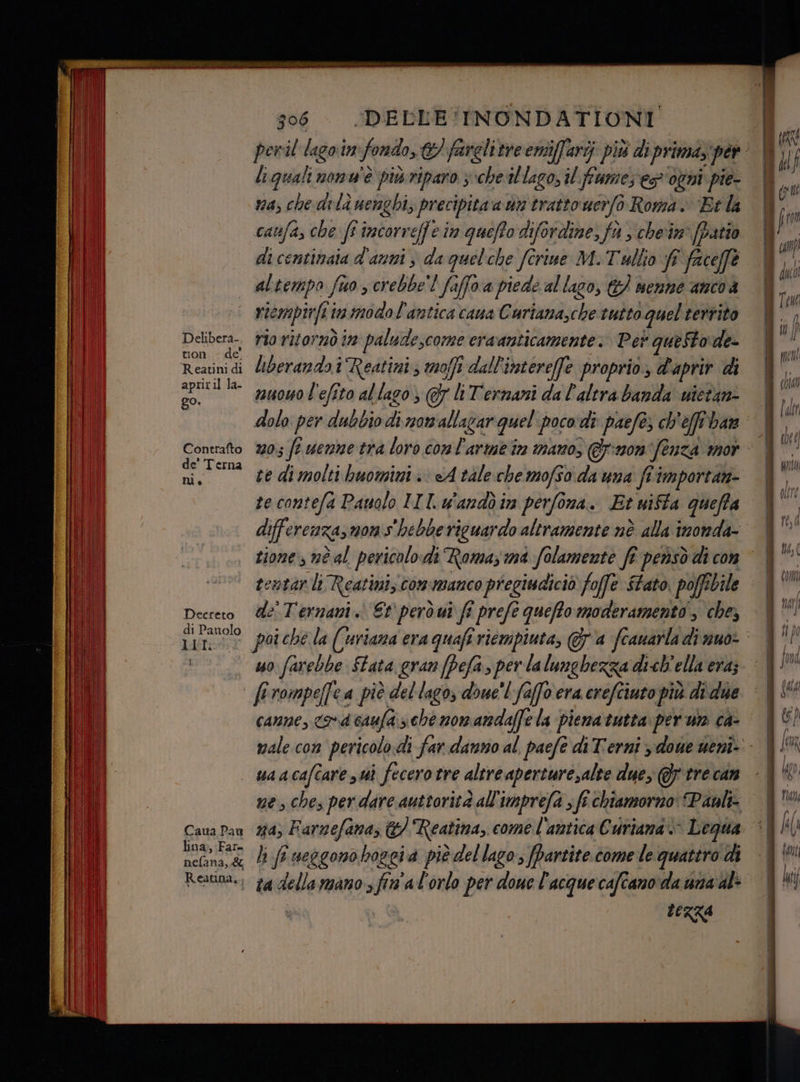 306 DELLE INONDATIONI
per il lago in fondo, & fargli tre emiſſarij più di prima, per
li quali non u'è più riparo; che il lago, il fiume, et ogni pie-
na, che di là uenghi, precipita a un tratto uerſo Roma. Et la
cauſa, che ſi incorreſſe in queſto diſordine, fù, che in ſpatio
di centinaia d'anni, da quel che ſcriue M. Tullio ſi faceſſe
al tempo ſuo, crebbe'l ſaſſo a piede al lago, & uenne anco a
riempirſi in modo l'antica caua Curiana, che tutto quel territo
rio ritornò in palude, come era anticamente. Per queſto de-
liberando i Reatini, moſſi dall'intereſſe proprio, d'aprir di
nuouo l'eſito al lago, & li Ternani da l'altra banda uietan-
dolo per dubbio di non allagar quel poco di paeſe, ch'eſſi han
no; ſi uenne tra loro con l'arme in mano, & non ſenza mor
te di molti huomini. A tale che moſſo da una ſi importan-
te conteſa Pauolo III. u'andò in perſona. Et uiſta queſta
differenza, non s'hebbe riguardo altramente nè alla inonda-
tione, nè al pericolo di Roma, ma ſolamente ſi penſò di con
tentar li Reatini, con manco pregiudicio foſſe ſtato poſſibile
de' Ternani. Et però ui ſi preſe queſto moderamento, che,
poi che la Curiana era quaſi riempiuta, & a ſcauarla di nuo-
uo ſarebbe ſtata gran ſpeſa, per la lunghezza di ch'ella era;
ſi rompeſſe a piè del lago, doue'l ſaſſo era creſciuto più di due
canne, et a cauſa, che non andaſſe la piena tutta per un ca-
nale con pericolo di far danno al paeſe di Terni, doue ueni-
ua a caſcare, ui fecero tre altre aperture, alte due, & tre can
ne, che, per dare auttorità all'impreſa, ſi chiamorno Pauli-
na, Farneſana, & Reatina, come l'antica Curiana. Lequa
li ſi ueggono hoggi a piè del lago, ſpartite come le quattro di
ta della mano, fin'a l'orlo per doue l'acque caſcano da una al-
tezza
Delibera-
tion de'
Reatini di
aprir il la-
go.
Contraſto
de' Terna
ni.
Decreto
di Pauolo
III.
Caua Pau
lina, Far-
neſana, &
Reatina.